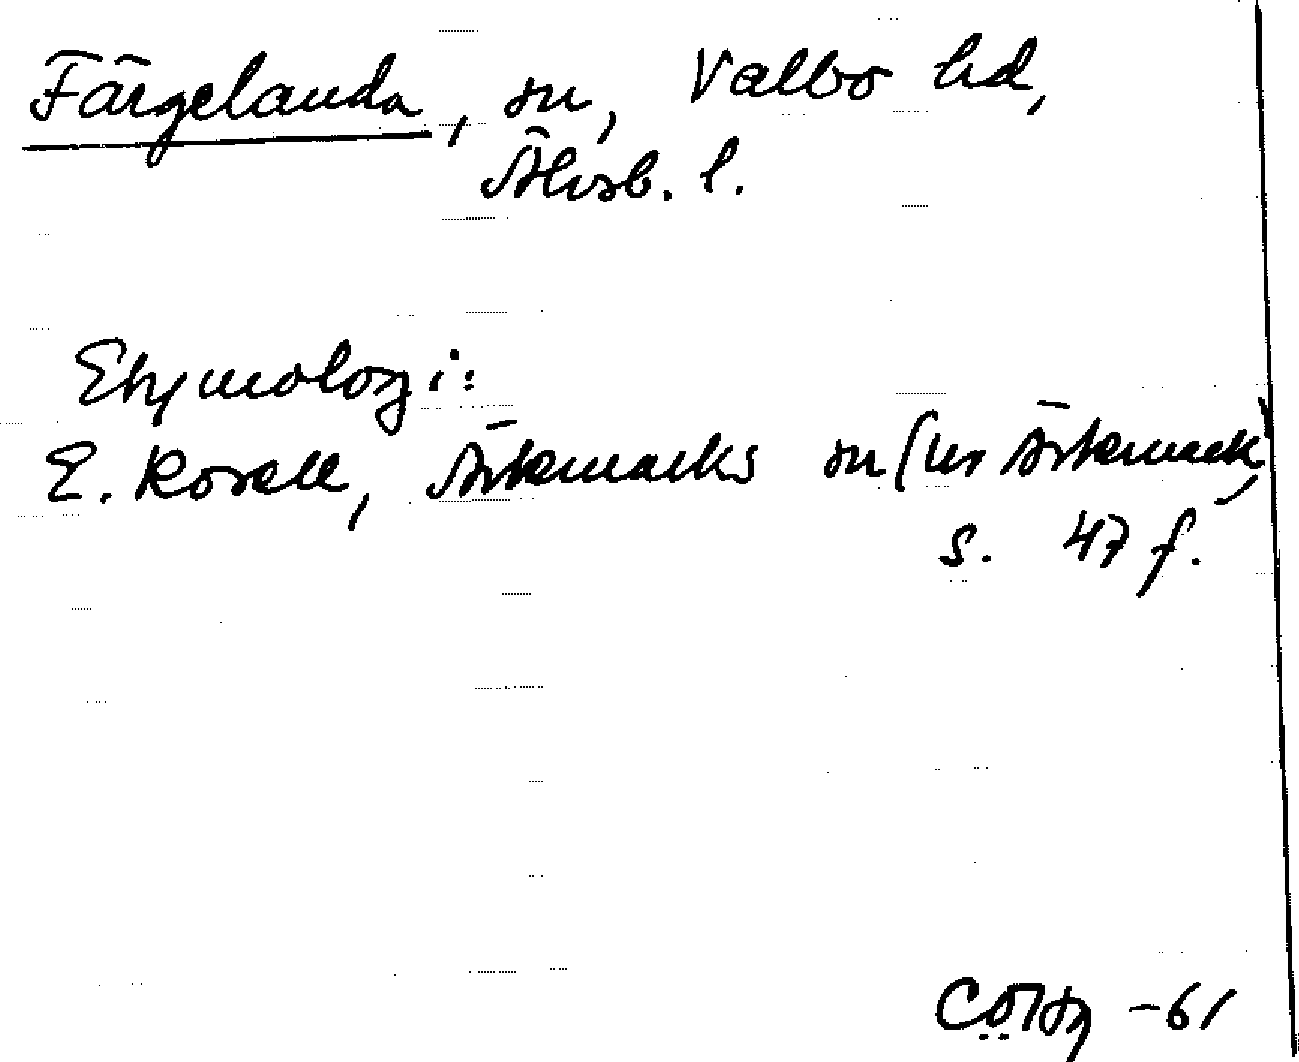 Färgelanda, sn, Valbo hd,
Älvsb. l.
Etymologi:
E. Rosell, Ärtemarks sn (ur Ärtemark),
s. 47 f.
-61